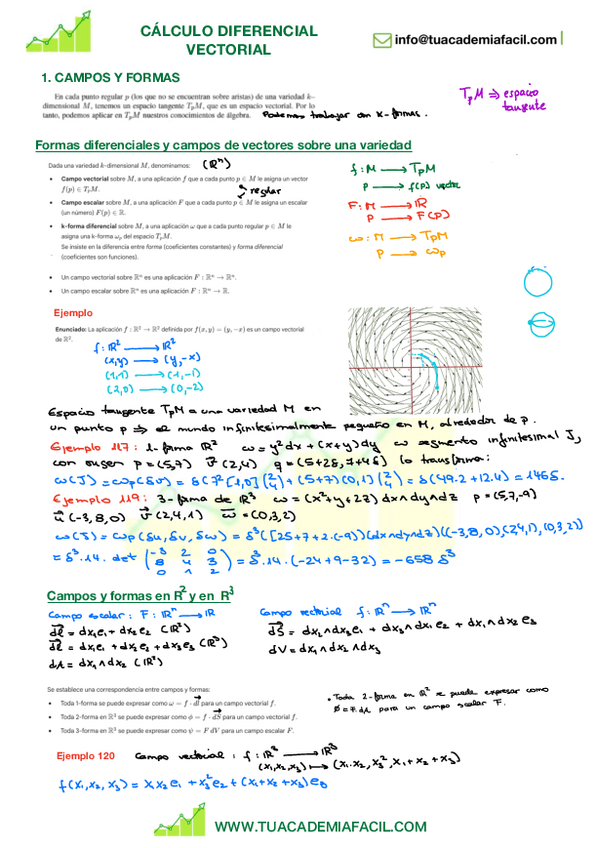 CÁLCULO DIFERENCIAL
VECTORIAL
info@tuacademiafacil.com
1. CAMPOS Y FORMAS
En cada punto regular p (los que no se encuentran sobre aristas) de una variedad k-
dimensional M, tenemos un espacio tangente TpM, que es un espacio vectorial. Por lo
tanto, podemos aplicar en TpM nuestros conocimientos de álgebra. Podemos trabajar con k-formas.
TpM ⇒ espacio
tangente
Formas diferenciales y campos de vectores sobre una variedad
Dada una variedad k-dimensional M, denominamos: (ℝⁿ)
• Campo vectorial sobre M, a una aplicación f que a cada punto p ∈ M le asigna un vector
f(p) ∈ TpM. regular
• Campo escalar sobre M, a una aplicación F que a cada punto p ∈ M le asigna un escalar
(un número) F(p) ∈ ℝ.
• k-forma diferencial sobre M, a una aplicación ω que a cada punto regular p ∈ M le
asigna una k-forma ωp del espacio TpM.
Se insiste en la diferencia entre forma (coeficientes constantes) y forma diferencial
(coeficientes son funciones).
• Un campo vectorial sobre ℝⁿ es una aplicación F : ℝⁿ → ℝⁿ.
• Un campo escalar sobre ℝⁿ es una aplicación F : ℝⁿ → ℝ.
f: M → TpM
p → f(p) vector
F: M → ℝ
p → F(p)
ω: M → TpM
p → ωp
Ejemplo
Enunciado: La aplicación f : ℝ² → ℝ² definida por f(x, y) = (y, −x) es un campo vectorial
de ℝ².
f: ℝ² → ℝ²
(x,y) → (y,-x)
(1,1) → (1,-1)
(2,0) → (0,-2)
Espacio tangente TpM a una variedad M en
un punto p ⇒ el mundo infinitesimalmente pequeño en M, alrededor de p.
Ejemplo 117: 1-forma ℝ² ω = y²dx + (x+y)dy ω segmento infinitesimal J,
con origen p = (5,7) v⃗(2,4) q = (5+2δ, 7+4δ) lo transforma:
ω(J) = ωp(δv) = δ(7²[1,0](2 4) + (5+7)(0,1)(2 4)) = δ(49·2 + 12·4) = 146δ.
Ejemplo 119: 3-forma de ℝ³ ω = (x²+y+2z) dx∧dy∧dz p = (5,7,-9)
u⃗(-3,8,0) v⃗(2,4,1) w⃗ = (0,3,2)
ω(J) = ωp(δu, δv, δw) = δ³([25+7+2·(-9)](dx∧dy∧dz)((-3,8,0),(2,4,1),(0,3,2))
= δ³·14·det (-3 2 0
8 4 3
0 1 2) = δ³·14·(-24+9-32) = -658 δ³
Campos y formas en R² y en R³
Campo escalar: F: ℝⁿ → ℝ
dl⃗ = dx₁e₁ + dx₂e₂ (ℝ²)
dl⃗ = dx₁e₁ + dx₂e₂ + dx₃e₃ (ℝ³)
dA = dx₁∧dx₂ (ℝ²)
Campo vectorial f: ℝⁿ → ℝⁿ
dS⃗ = dx₂∧dx₃e₁ + dx₃∧dx₁e₂ + dx₁∧dx₂e₃
dV = dx₁∧dx₂∧dx₃
Se establece una correspondencia entre campos y formas:
• Toda 1-forma se puede expresar como ω = f · dl⃗ para un campo vectorial f.
• Toda 2-forma en ℝ³ se puede expresar como φ = f · dS⃗ para un campo vectorial f.
• Toda 3-forma en ℝ³ se puede expresar como ψ = F dV para un campo escalar F.
• Toda 2-forma en ℝ² se puede expresar como
Ø = F·dA para un campo escalar F.
Ejemplo 120 Campo vectorial: f: ℝ³ → ℝ³
(x₁,x₂,x₃) ↦ (x₁·x₂, x₃², x₁+x₂+x₃)
f(x₁,x₂,x₃) = x₁x₂e₁ + x₃²e₂ + (x₁+x₂+x₃)e₃
WWW.TUACADEMIAFACIL.COM